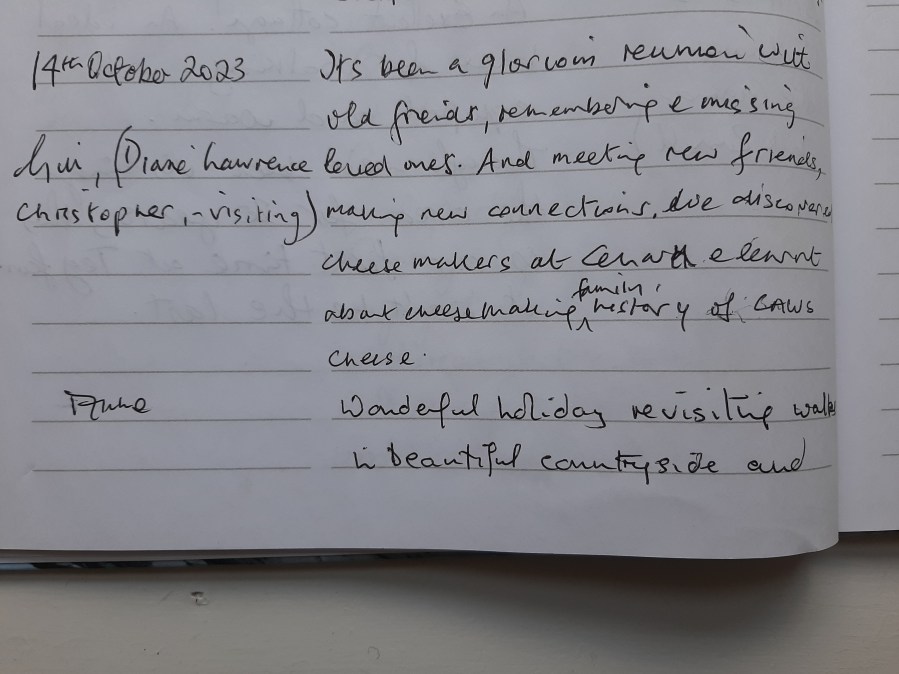 14th October 2023 It's been a glorious reunion with
old friends, remembering & missing
(Diane Lawrence loved ones. And meeting new friends,
Christopher, - visiting) making new connections, we discovered
cheese makers at Cenarth & learnt
about cheesemaking, family history of CAWS
cheese.
Anne Wonderful holiday revisiting walks
in beautiful countryside and